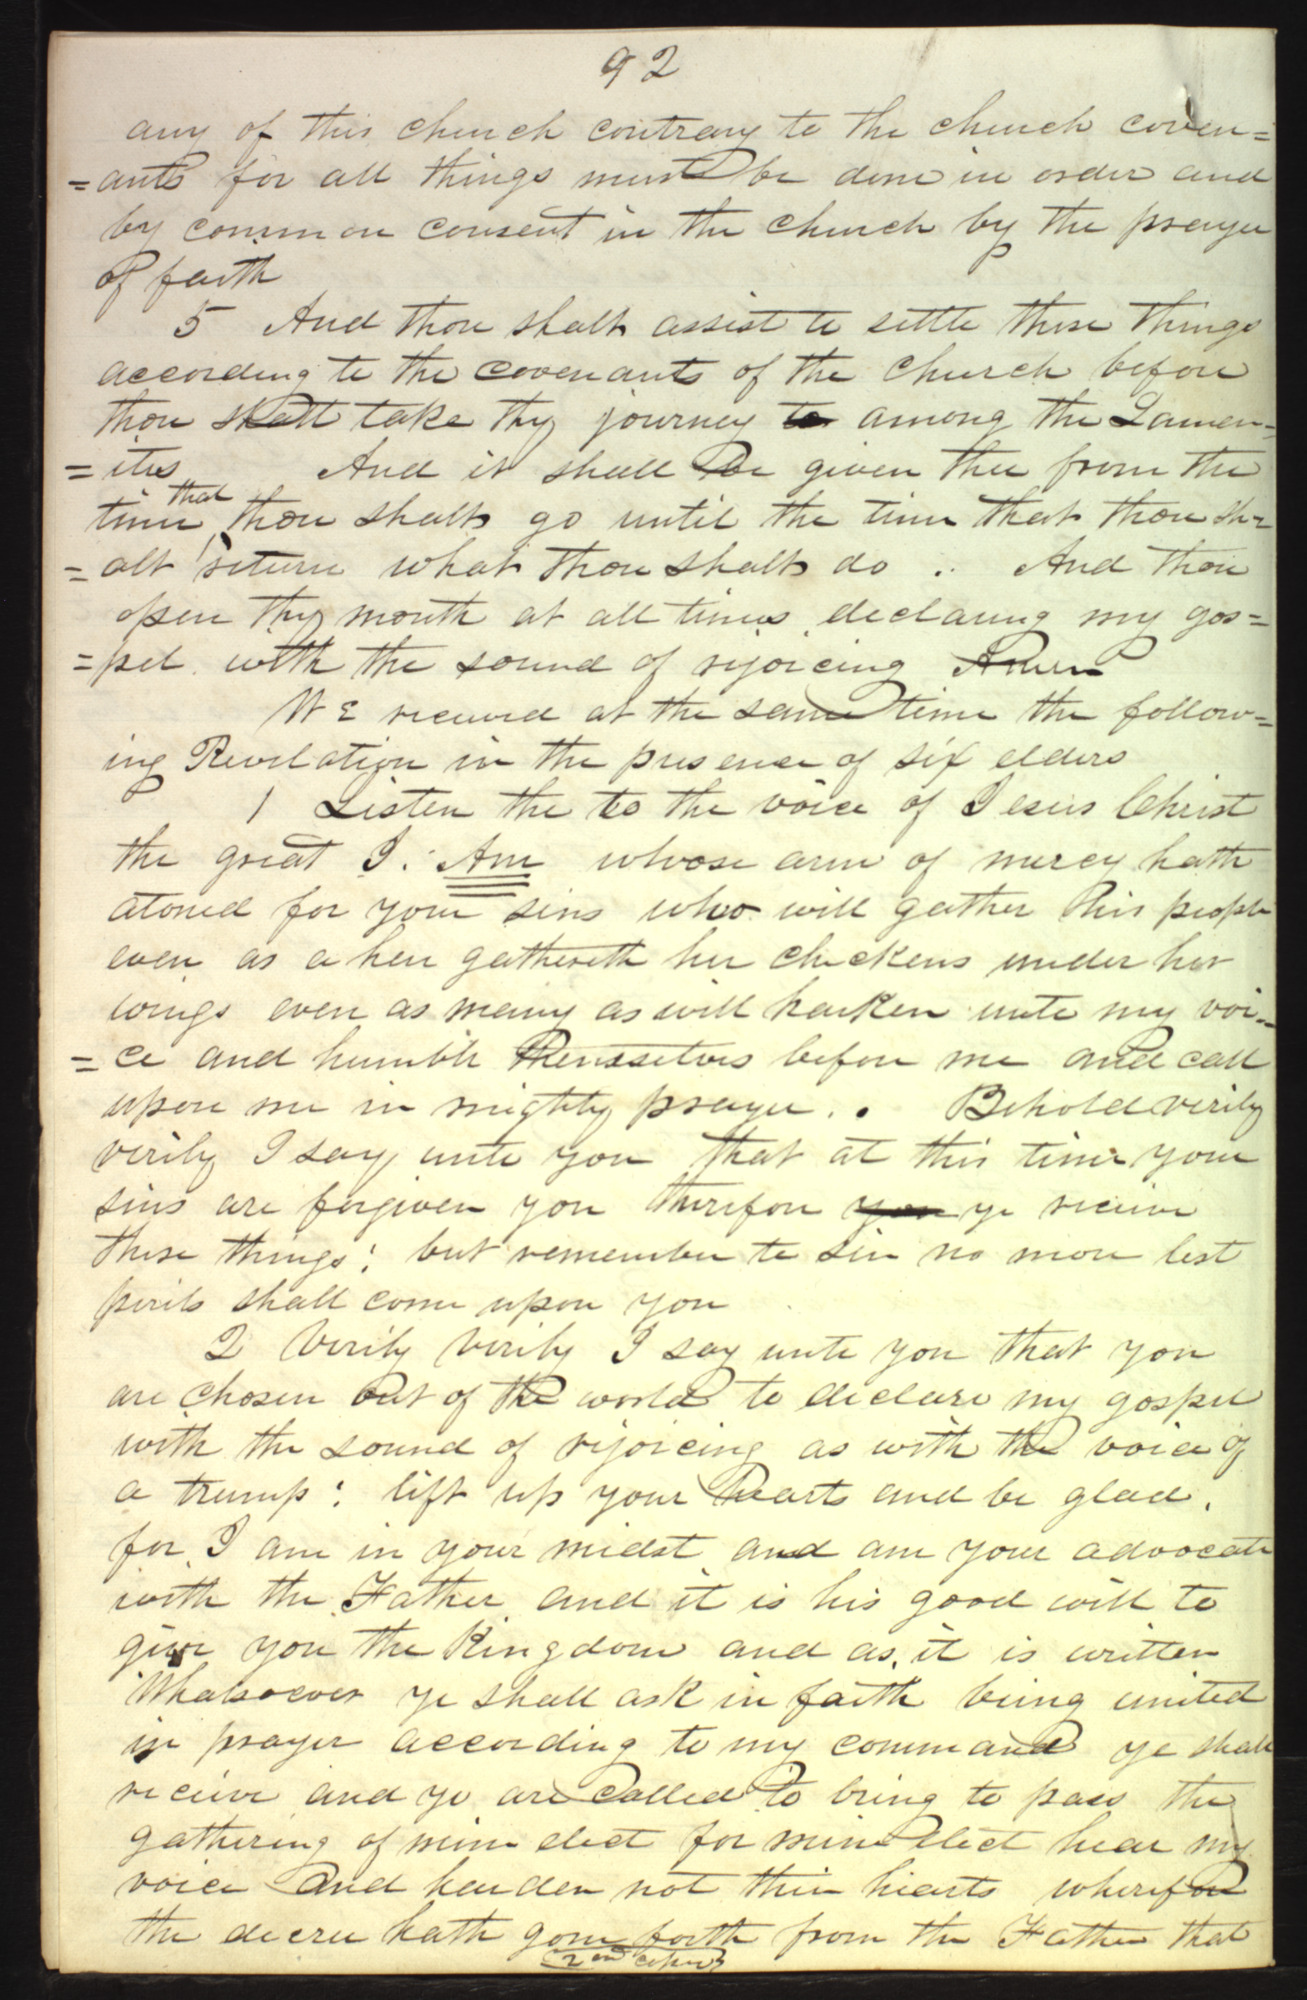 92
any of this church contrary to the church coven=
=ants for all things must be done in order and
by common consent in the church by the prayer
of faith
5 And thou shalt assist to settle these things
according to the covenants of the church before
thou shalt take thy journey to among the Laman=
=ites And it shall be given thee from the
time that thou shalt go until the time that thou sh=
=alt return what thou shalt do . And thou
open thy mouth at all times declaring my gos=
=pel with the sound of rejoicing Amen
We received at the same time the follow=
ing Revelation in the presence of six elders
1 Listen the to the voice of Jesus Christ
the great I. Am whose arm of mercy hath
atoned for your sins who will gather his people
even as a hen gathereth her chickens under her
wings even as many as will harken unto my voi=
=ce and humble themsselves before me and call
upon me in mighty prayer. . Behold verily
verily I say unto you that at this time your
sins are forgiven you therefore you ye receive
these things; but remember to sin no more lest
perils shall come upon you
2 Verily Verily I say unto you that you
are chosen out of the world to declare my gospel
with the sound of rejoicing as with the voice of
a trump: lift up your hearts and be glad,
for I am in your midst and am your advocate
with the Father and it is his good will to
give you the Kingdom and as it is written
Whatsoever ye shall ask in faith being united
in prayer according to my command ye shall
receive and ye are called to bring to pass the
gathering of mine elect for mine elect hear my
voice and harden not thier hearts wherefore
the decree hath gone forth from the Father that